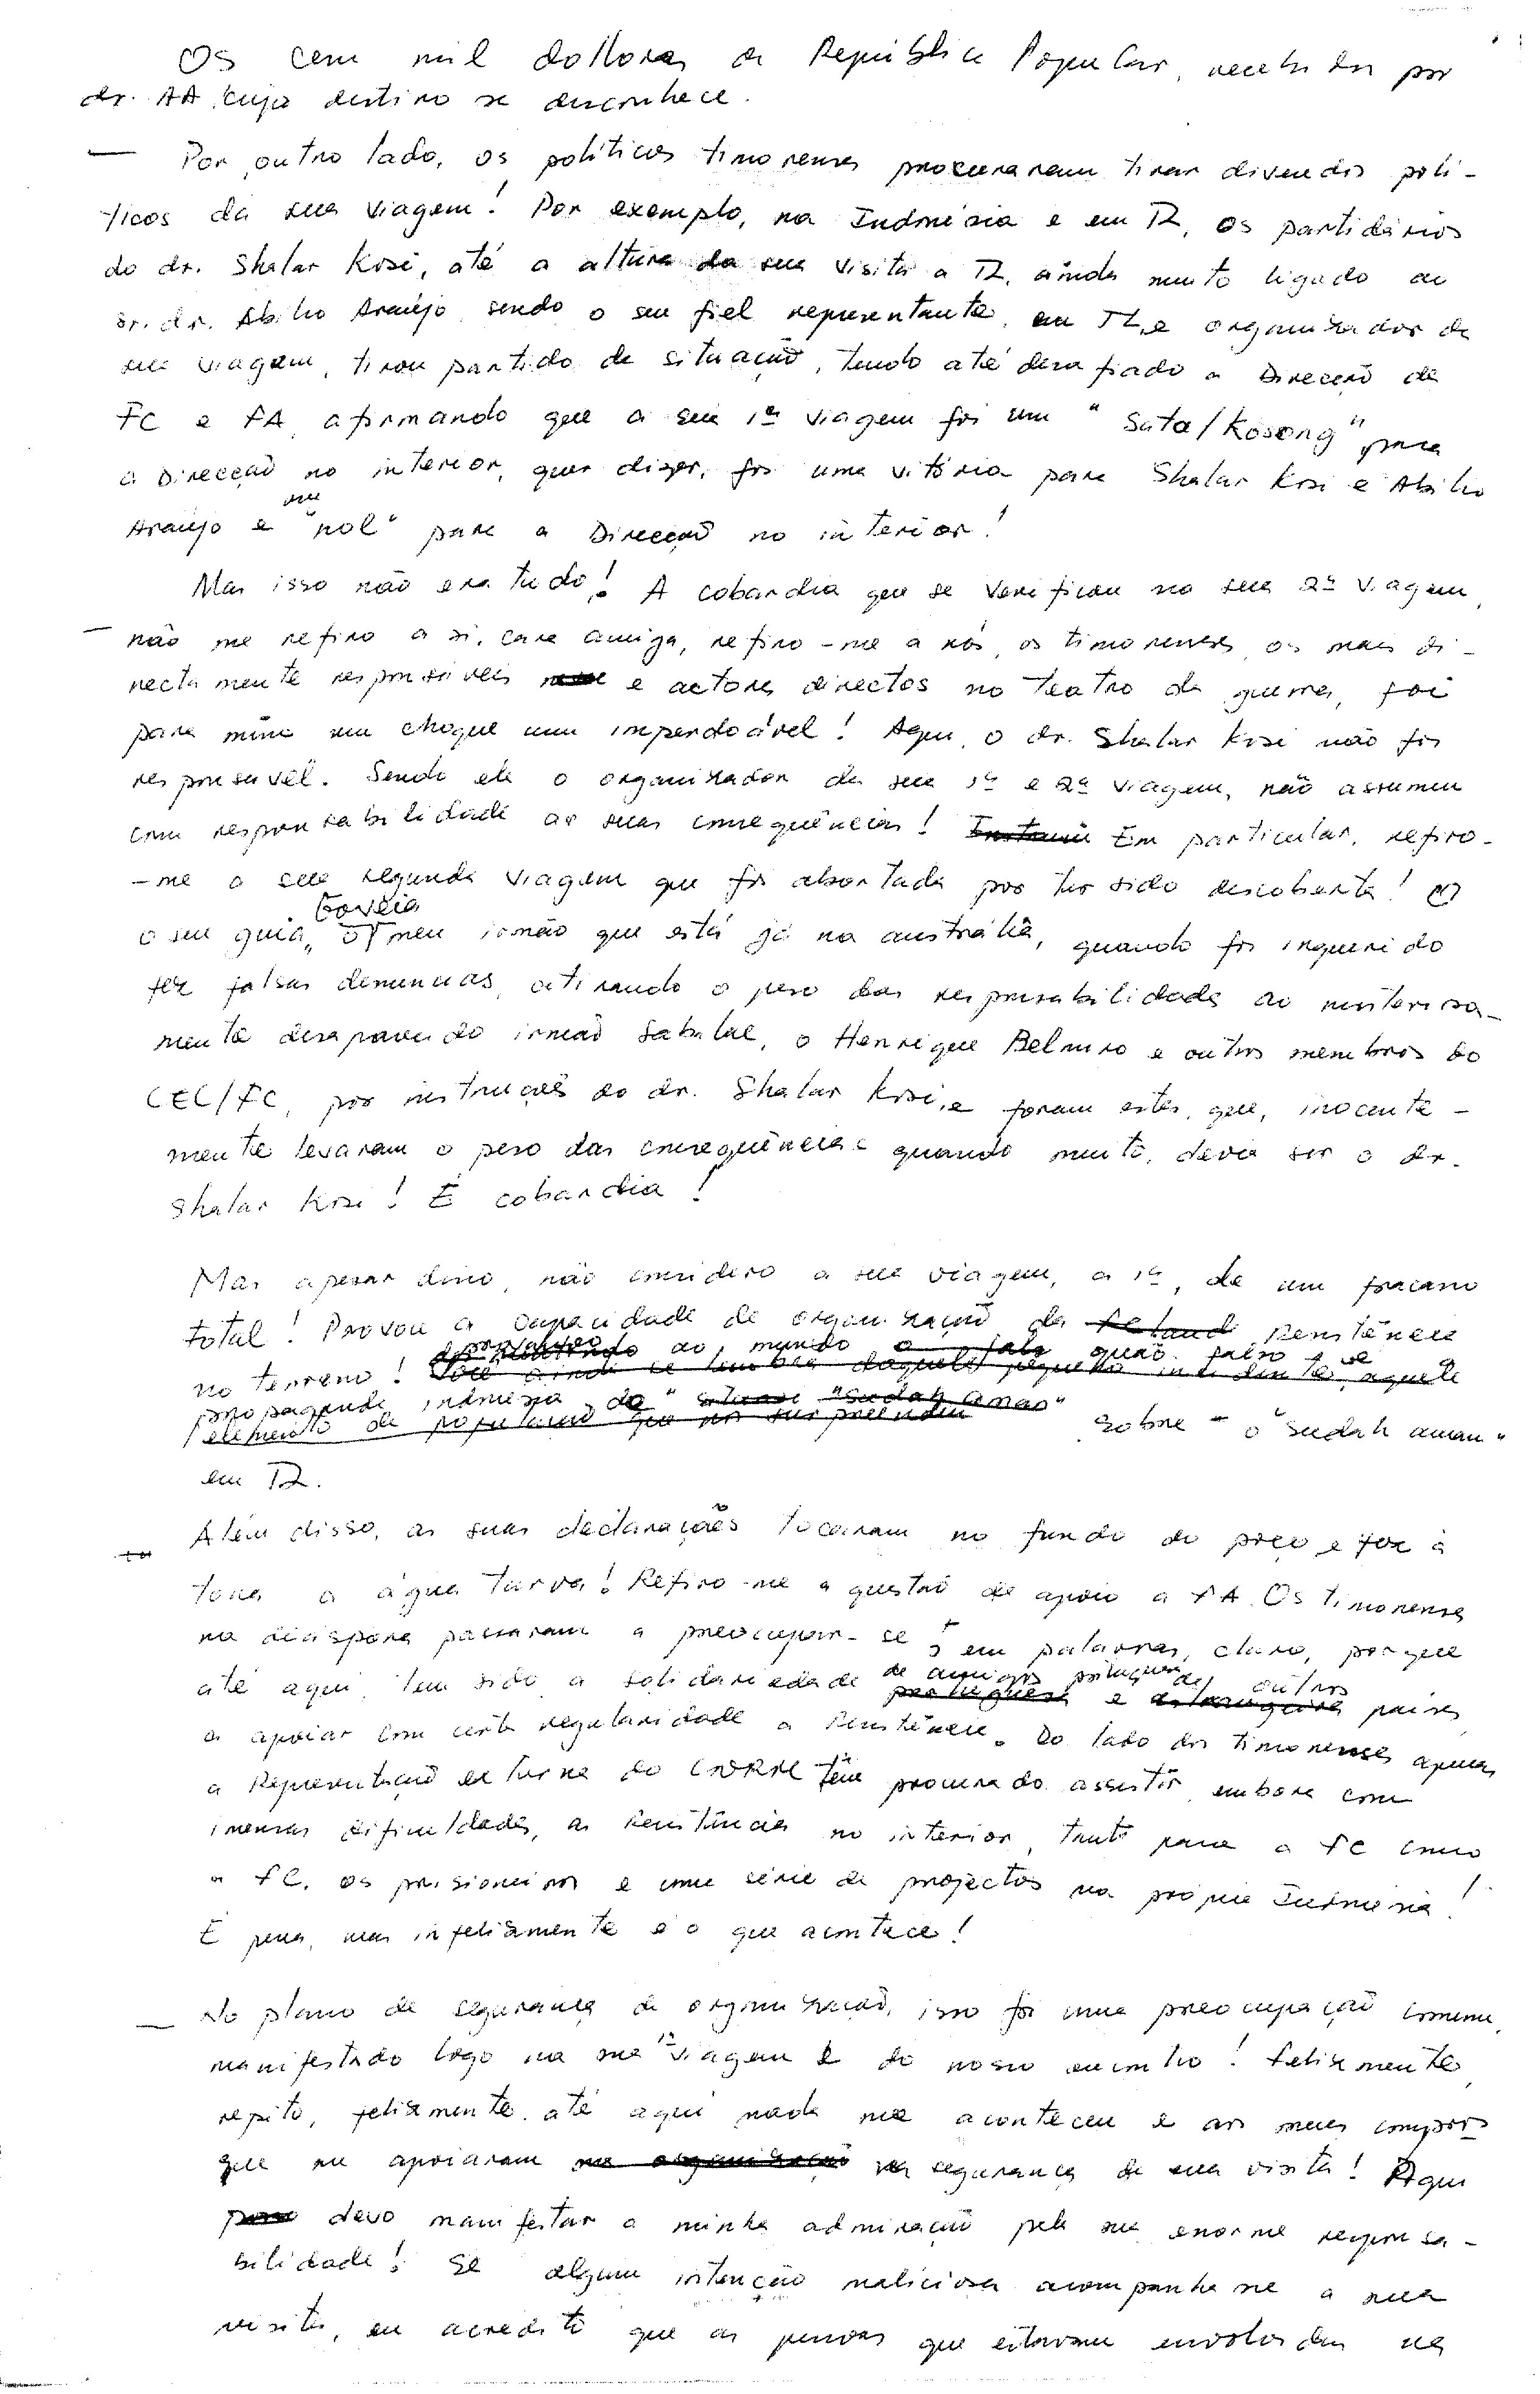 Os cem mil dollares da República Popular, recebidos por
dr. AA cujo destino se desconhece.
— Por outro lado, os políticos timorenses procuraram tirar dividendos polí-
ticos da sua viagem! Por exemplo, na Indonésia e em TL, os partidários
do dr. Shalar Kosi, até a altura da sua visita a TL, ainda muito ligado ao
sr. dr. Abílio Araújo, sendo o seu fiel representante em TL e organizador da
sua viagem, tirou partido da situação, tendo até desafiado a Direcção da
FC e FA afirmando que a sua 1ª viagem foi um "Satu/Kosong" para
a Direcção no interior, quer dizer, foi uma vitória para Shalar Kosi e Abílio
Araújo e um "nol" para a Direcção no interior!
Mas isso não era tudo! A cobardia que se verificou na sua 2ª viagem,
— não me refiro a si, cara amiga, refiro-me a nós, os timorenses, os mais di-
rectamente responsáveis e actores directos no teatro da guerra, foi
para mim um choque um imperdoável! Aqui, o dr. Shalar Kosi não foi
responsável. Sendo ele o organizador da sua 1ª e 2ª viagem, não assumiu
com responsabilidade as suas consequências! Em particular, refiro-
-me a sua segunda viagem que foi abortada por ter sido descoberta!
o seu guia, Govêia o meu irmão que está já na austrália, quando foi inquerido
fez falsas denuncias, atirando o peso das responsabilidade ao misteriosa-
mente desaparecido irmão Sabalae, o Henrique Belmiro e outros membros do
CEC/FC, por instruções do dr. Shalar Kosi, e foram estes, que, inocente-
mente levaram o peso das consequências quando muito, devia ser o dr.
Shalar Kosi! É cobardia!
Mas apesar disso, não considero a sua viagem, a 1ª, de um fracasso
total! Provou a capacidade de organização da Resistência
no terreno! ao mundo quão falso é se
Você ainda se lembra daquele pequeno incidente, aquele
propaganda indonésia da "sudah aman" sobre - o "sudah aman"
elemento da população que nos surpreendeu
em TL.
Além disso, as suas declarações tocaram no fundo do poço e fez à
tona a água turva! Refiro-me a questão de apoio a FA. Os timorenses
na diáspora passaram a preocupar-se em palavras, claro, porque
até aqui, tem sido a solidariedade de amigos portugueses e de outros países
a apoiar com certa regularidade a Resistência. Do lado dos timorenses apenas
a Representação externa do CNRM têm procurado assistir, embora com
imensas dificuldades, as Resistências no interior, tanto para a FC como
a FC, os prisioneiros e uma série de projectos na própria Indonésia!
É pena, mas infelizmente é o que acontece!
— No plano de segurança da organização, isso foi uma preocupação comum,
manifestado logo na sua 1ª viagem e do nosso encontro! Felizmente,
repito, felizmente, até aqui nada me aconteceu e aos meus
que me apoiaram na segurança da sua visita! Aqui
devo manifestar a minha admiração pela sua enorme responsa-
bilidade! Se alguma intenção maliciosa acompanhasse a sua
visita, eu acredito que as pessoas que estavam envolvidas na